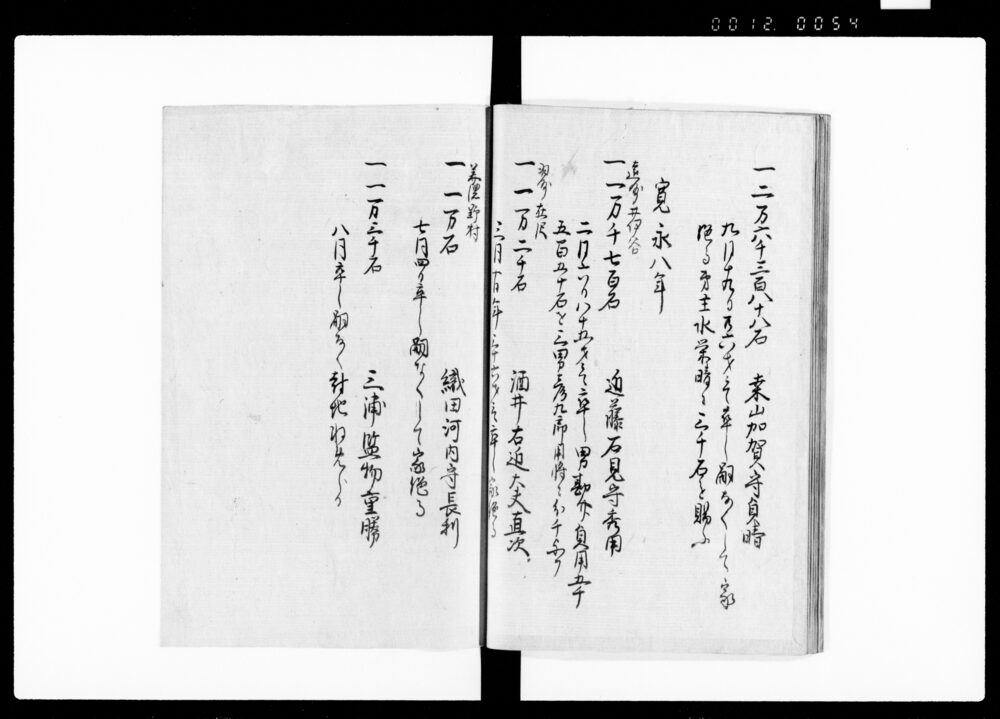 0012.0054
一 二万六千三百八十八石 桒山加賀守貞晴
九月十九日 六才ニて卒し嗣なくして家
絶る 弟主水栄晴に三千石を賜ふ
寛永八年
遠州井伊谷
一 一万千七百石 近藤石見守秀用
二月六日八十五才ニて卒し男勘介貞用五千
五百五十石を三男彦九郎用将に
羽州左沢
一 一万二千石 酒井右近大夫直次
三月十日年三十六才ニて卒し家絶る
美濃野村
一 一万石 織田河内守長則
七月四日卒し嗣なくして家絶る
一 一万三千石 三浦監物重勝
八月卒し嗣なく封地